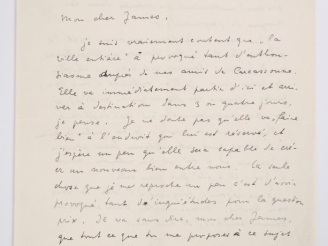 Mon cher James,
je suis vraiment content que "la
ville entière" a provoqué tant d'enthou-
siasme auprès de nos amis de Carcassonne.
Elle va immédiatement partir d'ici et arri-
ver à destination dans 3 ou quatre jours,
je pense. Je ne doute pas qu'elle va "faire
bien" à l'endroit qui lui est réservé, et
j'espère un peu qu'elle sera capable de cré-
er un nouveau lien entre nous. La seule
chose que je me reproche un peu c'est d'avoir
provoqué tant d'inquiétudes pour la question
prix. Il va sans dire, mon cher James,
que tout ce que tu me proposes à ce sujet